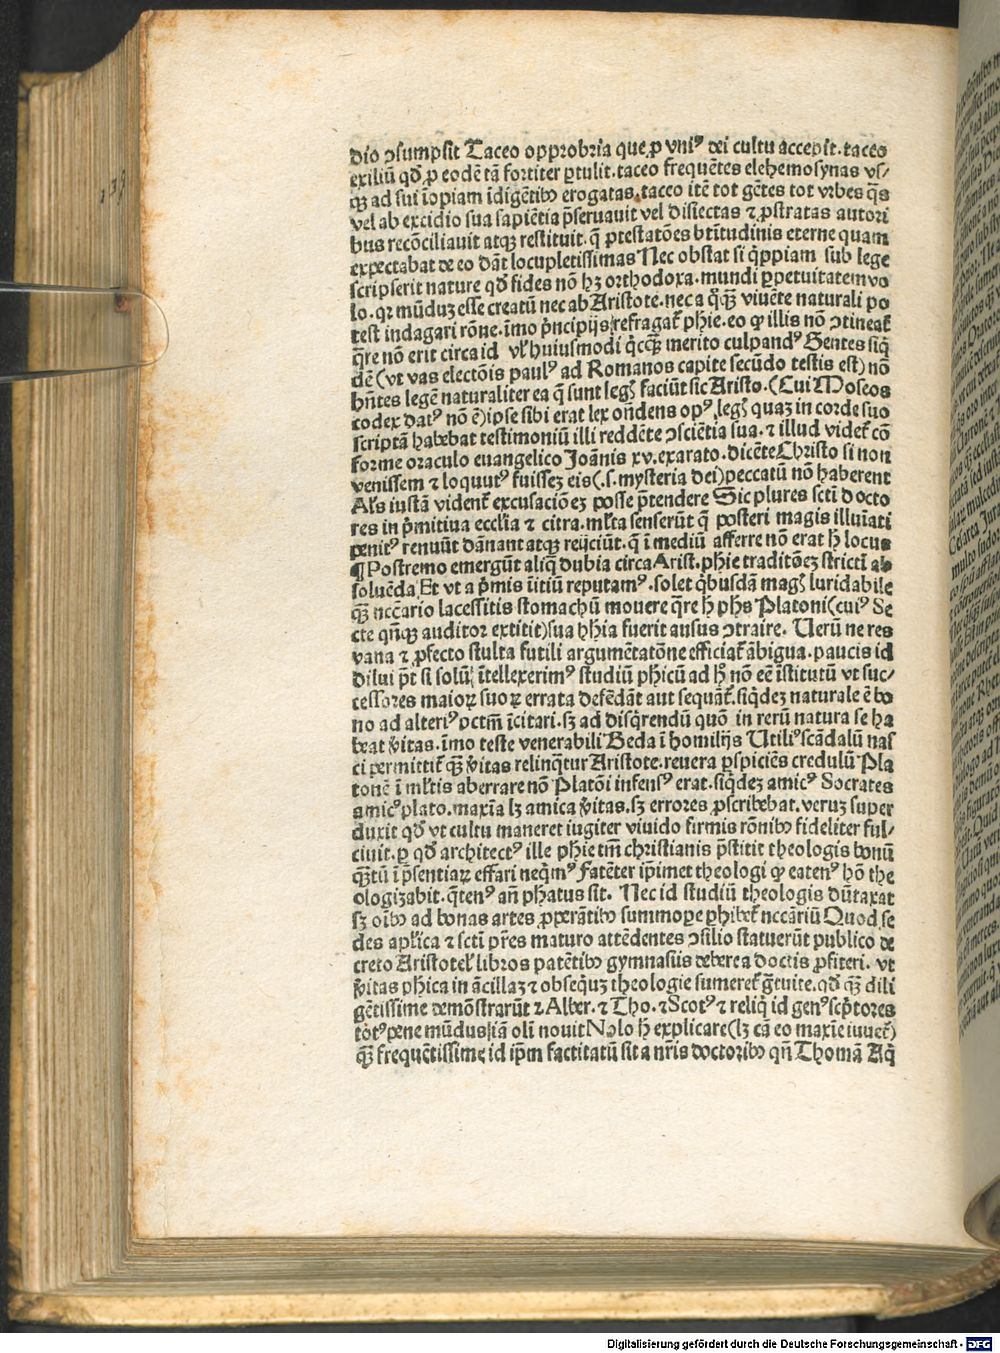 dio ↄsumpsit Taceo opprobria que ꝓ vniꝰ dei cultu accepit. taceo
exiliū qđ ꝓ eodē tā fortiter ꝑtulit. taceo frequētes elehemosynas vs/
qꝫ ad sui īopiam īdigētibꝰ erogatas. taceo itē tot gētes tot vrbes q̄s
vel ab excidio sua sapiētia p̄seruauit vel disiectas ⁊ ꝓstratas autori
bus recōciliauit atqꝫ restituit. q̄ ꝓtestatōes btītudinis eterne quam
expectabat de eo dāt locupletissimas Nec obstat si q̄ppiam sub lege
scripserit nature qđ fides nō hꝫ orthodoxa. mundi ꝑpetuitatem vo
lo. qꝛ mūduꝫ esse creatū nec ab Aristote. nec a q̊qꝫ viuēte naturali po
test indagari rōne. īmo p̄ncipijs refragat᷑ phie. eo ꝙ illis nō ↄtineat᷑
q̄re nō erit circa id vl̓ huiusmodi q̊cqꝫ merito culpandꝰ Gentes siq̇
dē (vt vas electōis paulꝰ ad Romanos capite secūdo testis est) nō
hn̄tes legē naturaliter ea q̄ sunt legꝭ faciūt sic Aristo. (Cui Moseos
codex datꝰ nō ē) ipse sibi erat lex on̄dens opꝰ legꝭ quaꝫ in corde suo
scriptā habebat testimoniū illi reddēte ↄsciētia sua. ⁊ illud videt᷑ cō
forme oraculo euangelico Joānis xv. exarato. dicēte Christo si non
venissem ⁊ loqutꝰ fuisseꝫ eis (.s. mysteria dei) peccatū nō haberent
Al̓s iustā vident᷑ excusaciōeꝫ posse p̄tendere Sic plures scti docto
res in p̄mitiua eccl̓ia ⁊ citra. ml̓ta senserūt q̄ posteri magis illuīati
penitꝰ renuūt dānant atqꝫ reijciūt. q̄ ī mediū afferre nō erat h̓ locus
¶ Postremo emergūt aliq̄ dubia circa Arist. phie traditōeꝫ stricti ab
soluēda Et vt a p̄mis īitiū reputamꝰ. solet q̊busdā magꝭ luridabile
qꝫ nccārio lacessitis stomachū mouere q̄re h̓ phs Platoni (cuiꝰ Se
cte qn̄qꝫ auditor extitit) sua hhīa fuerit ausus ↄtraire. Uerū ne res
vana ⁊ ꝓfecto stulta futili argumētatōne efficiat᷑ ābigua. paucis id
dilui pōt si solū ītellexerimꝰ studiū phicū ad h̓ nō eē īstitutū vt suc/
cessores maioꝝ suoꝝ errata defēdāt aut sequāt᷑. siq̇deꝫ naturale ē bo
no ad alteriꝰ pctm̄ īcitari. sꝫ ad disq̇rendū quō in rerū natura se ha
beat ṽitas. īmo teste venerabili Beda ī homilijs Utiliꝰ scādalū nas
ci permittit᷑ qꝫ ṽitas relinq̄tur Aristote. reuera ꝑspiciēs credulū Pla
tonē ī ml̓tis aberrare nō Platōi infensꝰ erat. siq̇deꝫ amicꝰ Socrates
amicꝰ plato. maxīa lꝫ amica ṽitas. sꝫ errores ꝓscribebat. veruꝫ super
duxit qđ vt cultu maneret iugiter viuido firmis rōnibꝰ fideliter ful/
ciuit. ꝑ qđ architectꝰ ille phie tm̄ christianis p̄stitit theologis bonū
qꝫtū ī p̄sentiaꝝ effari neq̇mꝰ Fatēter ip̄imet theologi ꝙ eatenꝰ hō the
ologizabit. q̄tenꝰ an̄ phatus sit. Nec id studiū theologis dūtaxat
sꝫ oībꝰ ad bonas artes ꝓperātibꝰ summope ꝑhibet᷑ nccāriū Quod se
des apl̓ica ⁊ scti pr̄es maturo attēdentes ↄsilio statuerūt publico de
creto Aristotel̓ libros patētibꝰ gymnasijs debere a doctis ꝓfiteri. vt
ṽitas phica in ācillaꝫ ⁊ obsequꝫ theologie sumeret᷑ g̊tuite. qđ qꝫ dili
gētissime demōstrarūt ⁊ Alber. ⁊ Tho. ⁊ Scotꝰ ⁊ reliq̇ id genꝰ sc̓ptores
totꝰ pene mūdus iā oli nouit Nolo h̓ explicare (lꝫ cā eo maxie iuuet᷑)
qꝫ frequētissime id ip̄m factitatū sit a nr̄is doctoribꝰ qn̄ Thomā Aq̇
133
Digitalisierung gefördert durch die Deutsche Forschungsgemeinschaft - DFG